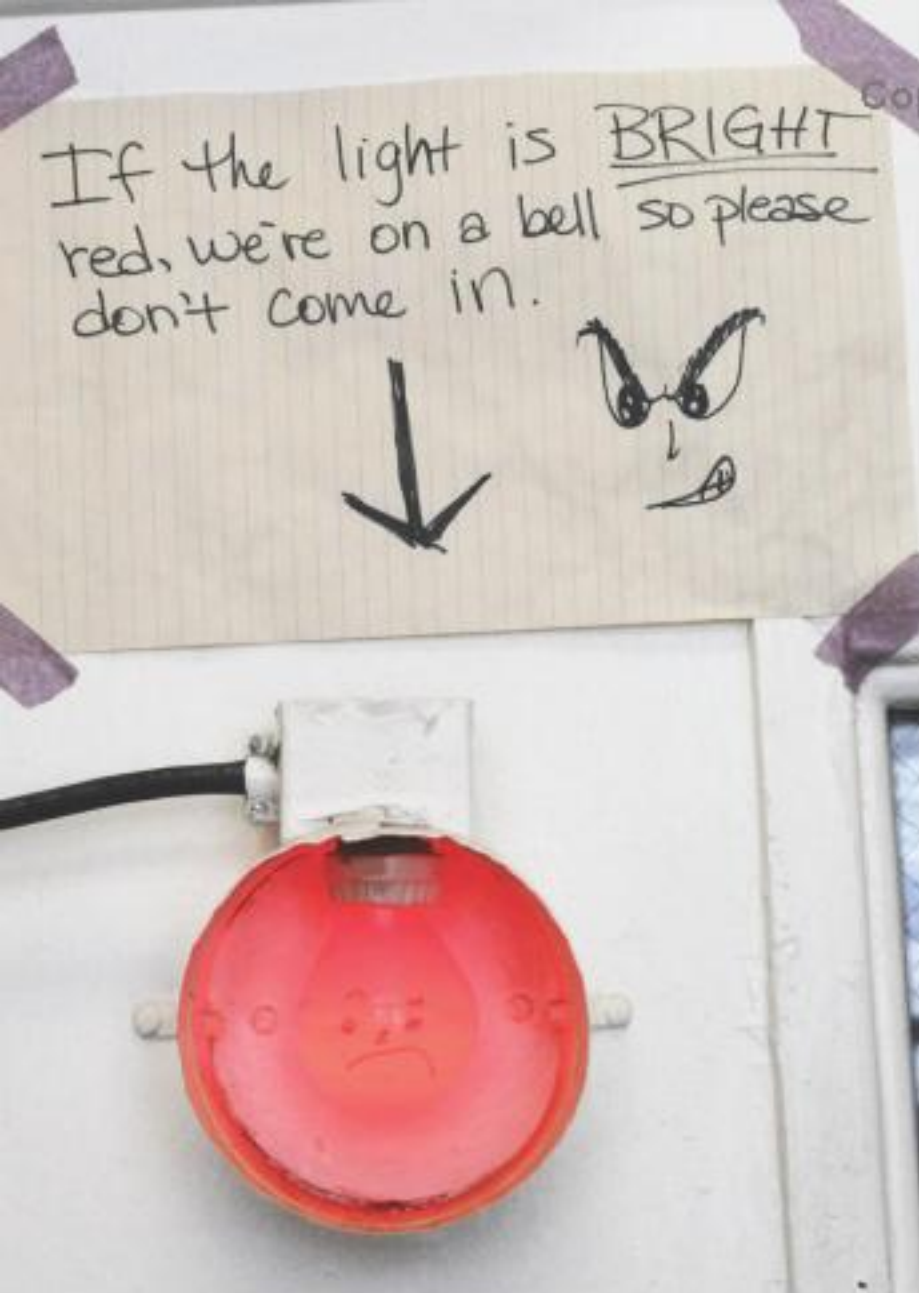 If the light is BRIGHT
red, we're on a bell so please
don't come in.